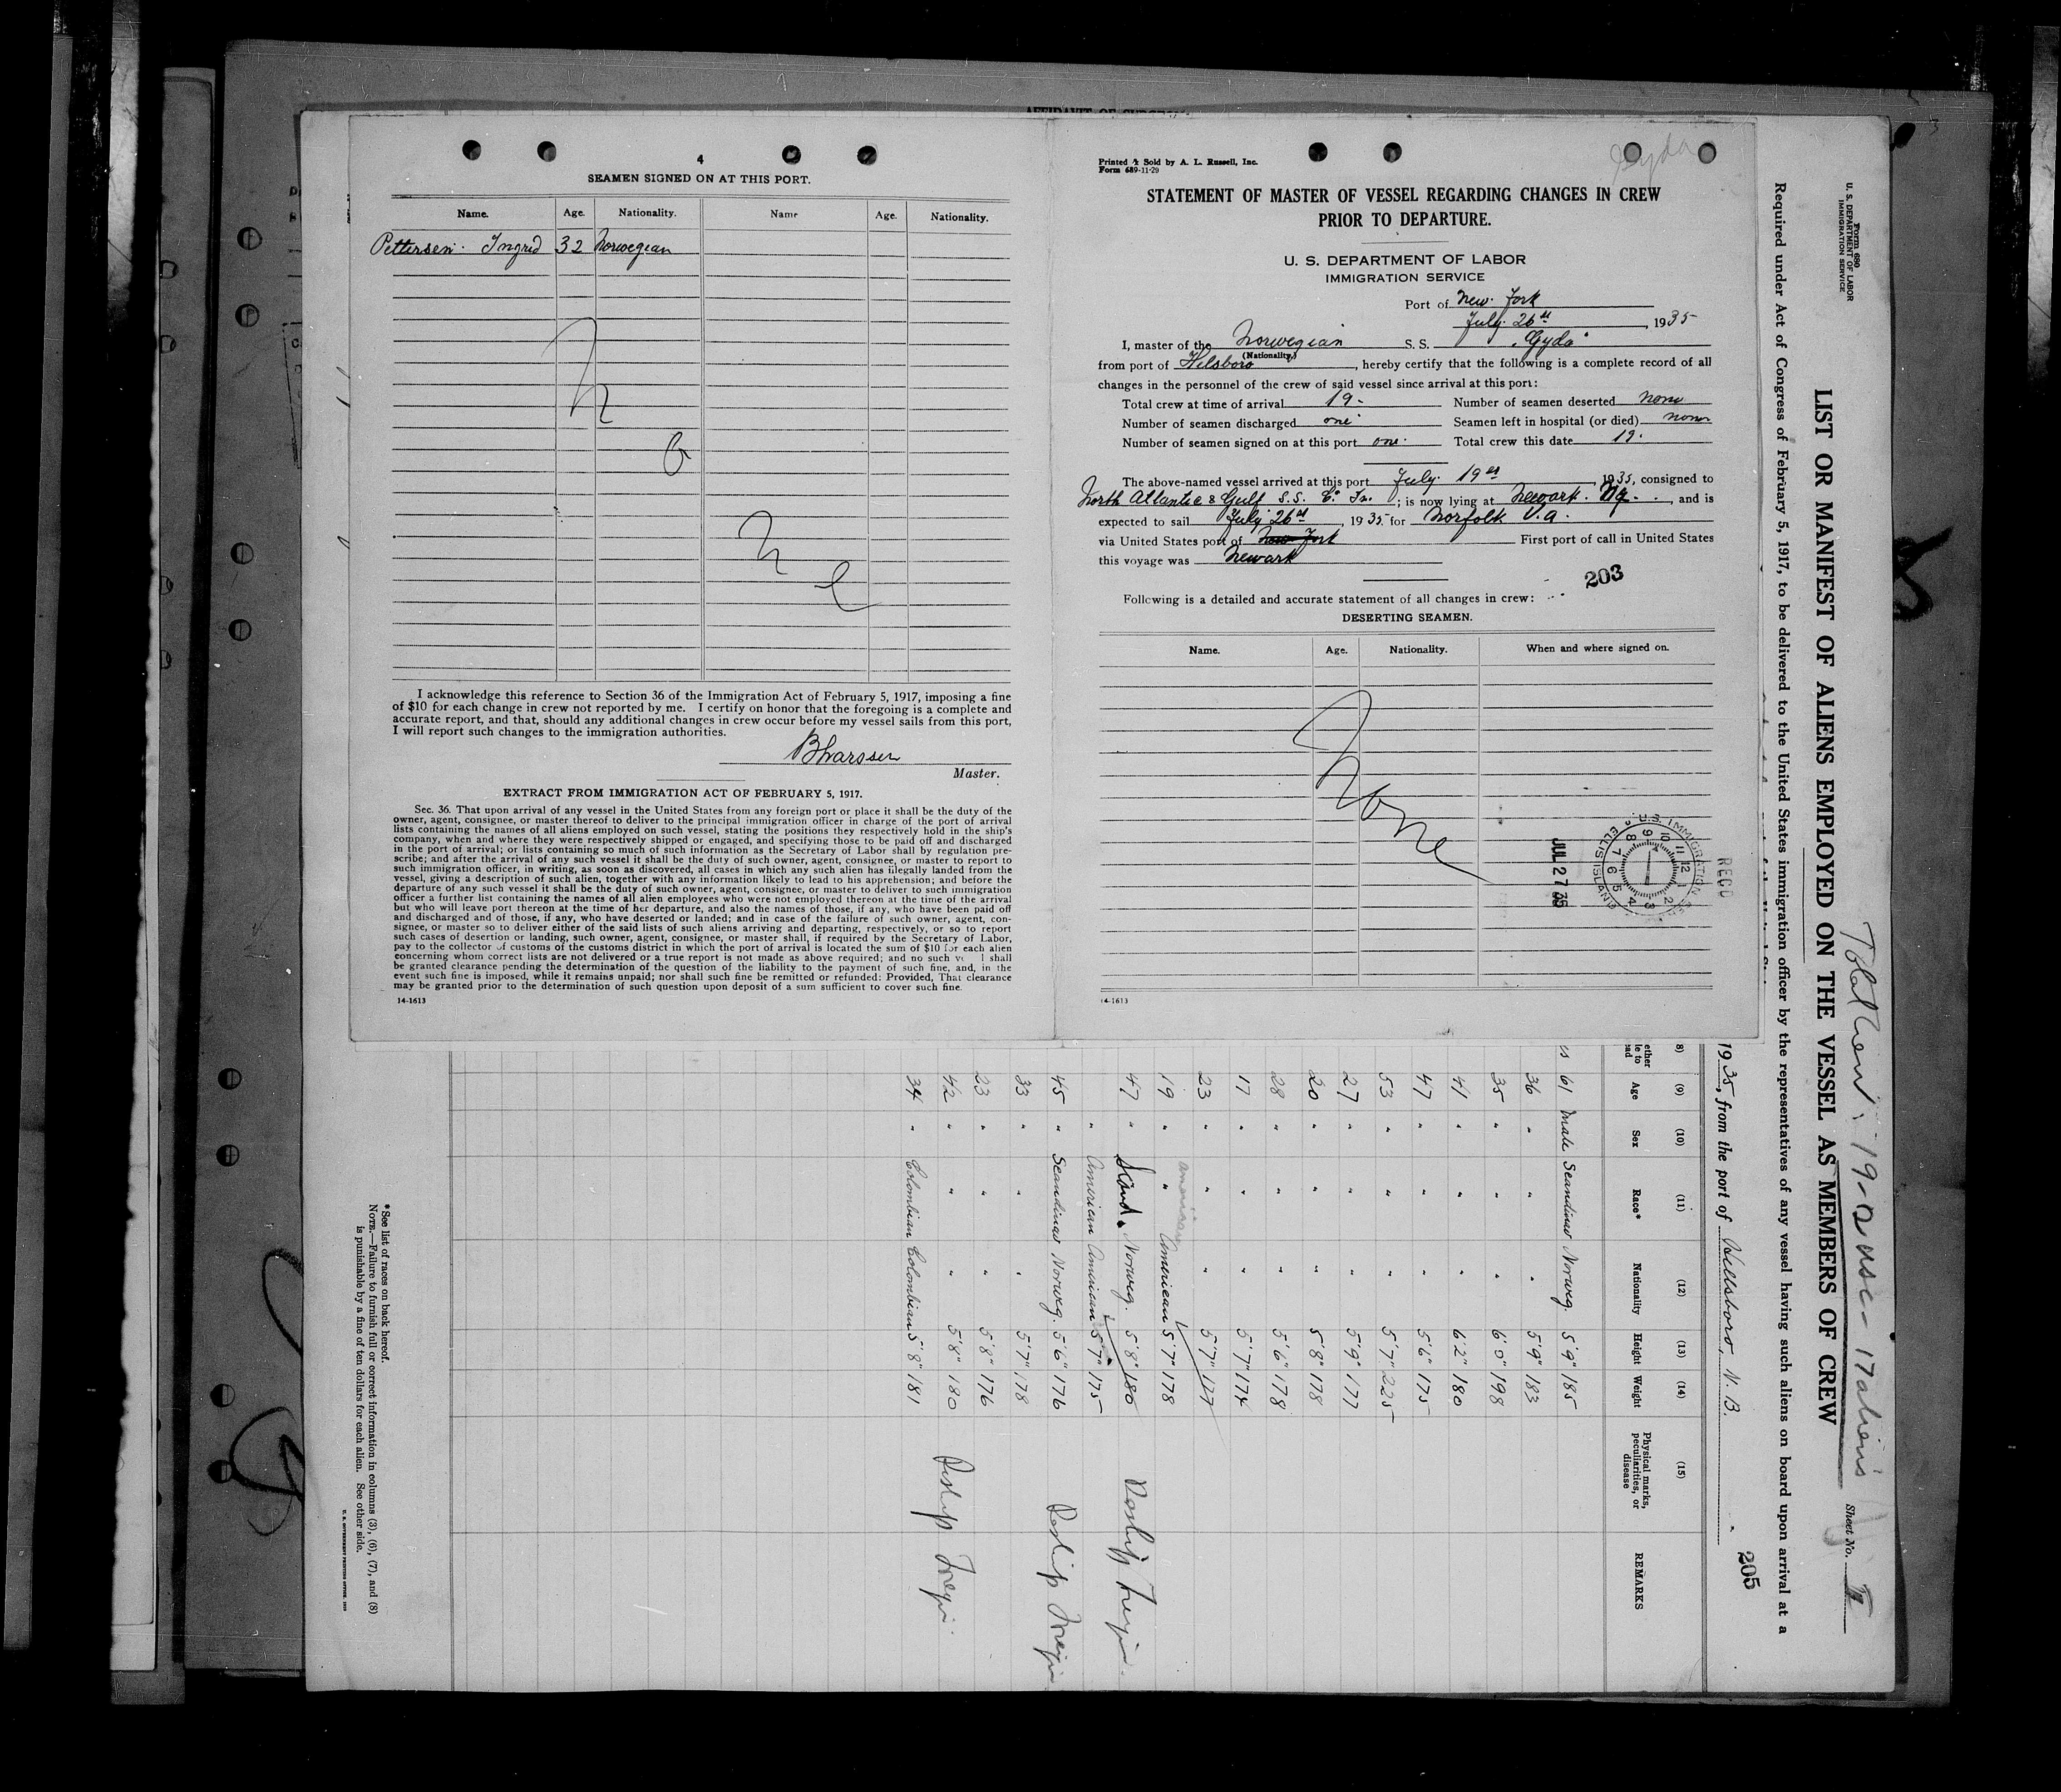 4
SEAMEN SIGNED ON AT THIS PORT.
Name. Age. Nationality. Name Age. Nationality.
Pettersen. Ingrid 32 Norwegian
None
I acknowledge this reference to Section 36 of the Immigration Act of February 5, 1917, imposing a fine
of $10 for each change in crew not reported by me. I certify on honor that the foregoing is a complete and
accurate report, and that, should any additional changes in crew occur before my vessel sails from this port,
I will report such changes to the immigration authorities.
Master.
EXTRACT FROM IMMIGRATION ACT OF FEBRUARY 5, 1917.
Sec. 36. That upon arrival of any vessel in the United States from any foreign port or place it shall be the duty of the
owner, agent, consignee, or master thereof to deliver to the principal immigration officer in charge of the port of arrival
lists containing the names of all aliens employed on such vessel, stating the positions they respectively hold in the ship's
company, when and where they were respectively shipped or engaged, and specifying those to be paid off and discharged
in the port of arrival; or lists containing so much of such information as the Secretary of Labor shall by regulation pre-
scribe; and after the arrival of any such vessel it shall be the duty of such owner, agent, consignee, or master to report to
such immigration officer, in writing, as soon as discovered, all cases in which any such alien has illegally landed from the
vessel, giving a description of such alien, together with any information likely to lead to his apprehension; and before the
departure of any such vessel it shall be the duty of such owner, agent, consignee, or master to deliver to such immigration
officer a further list containing the names of all alien employees who were not employed thereon at the time of the arrival
but who will leave port thereon at the time of her departure, and also the names of those, if any, who have been paid off
and discharged and of those, if any, who have deserted or landed; and in case of the failure of such owner, agent, con-
signee, or master so to deliver either of the said lists of such aliens arriving and departing, respectively, or so to report
such cases of desertion or landing, such owner, agent, consignee, or master shall, if required by the Secretary of Labor,
pay to the collector of customs of the customs district in which the port of arrival is located the sum of $10 for each alien
concerning whom correct lists are not delivered or a true report is not made as above required; and no such ve l shall
be granted clearance pending the determination of the question of the liability to the payment of such fine, and, in the
event such fine is imposed, while it remains unpaid; nor shall such fine be remitted or refunded: Provided, That clearance
may be granted prior to the determination of such question upon deposit of a sum sufficient to cover such fine.
14-1613
Gyda
Printed & Sold by A. L. Russell, Inc.
Form 689-11-29
STATEMENT OF MASTER OF VESSEL REGARDING CHANGES IN CREW
PRIOR TO DEPARTURE.
U. S. DEPARTMENT OF LABOR
IMMIGRATION SERVICE
Port of New York
July 26th, 1935
I, master of the Norwegian S. S. "Gyda"
(Nationality)
from port of Hilsboro, hereby certify that the following is a complete record of all
changes in the personnel of the crew of said vessel since arrival at this port:
Total crew at time of arrival 19- Number of seamen deserted none
Number of seamen discharged one Seamen left in hospital (or died) none
Number of seamen signed on at this port one. Total crew this date 19.
The above-named vessel arrived at this port July 19th, 1935, consigned to
North Atlantic & Gulf S.S. Co. In.; is now lying at Newark. , and is
expected to sail July 26th, 1935 for Norfolk Va.
via United States port of New York First port of call in United States
this voyage was Newark
203
Following is a detailed and accurate statement of all changes in crew:
DESERTING SEAMEN.
Name. Age. Nationality. When and where signed on.
None
JUL 27 35
U. S. IMMIGRATION
ELLIS ISLAND
RECD
14-1613
Form 680
U. S. DEPARTMENT OF LABOR
IMMIGRATION SERVICE
Total Crew: 19-2 USC-17 aliens
Sheet No. II
LIST OR MANIFEST OF ALIENS EMPLOYED ON THE VESSEL AS MEMBERS OF CREW
Required under Act of Congress of February 5, 1917, to be delivered to the United States immigration officer by the representatives of any vessel having such aliens on board upon arrival at a
1935, from the port of Hillsboro, N.B.
205
(9) (10) (11) (12) (13) (14) (15)
Age Sex Race* Nationality Height Weight Physical marks, peculiarities, or disease REMARKS
61 male Scandinav Norweg. 5'9" 185
36 " " " 5'9" 183
35 " " " 6'0" 198
41 " " " 6'2" 180
47 " " " 5'6" 175
53 " " " 5'7" 225
27 " " " 5'9" 177
20 " " " 5'8" 178
28 " " " 5'6" 178
17 " " " 5'7" 174
23 " " " 5'7" 177
american
19 " " American 5'7" 178
47 " Scand. Norweg. 5'8" 180
" American American 5'7" 175
45 " Scandinav Norweg. 5'6" 176
33 " " " 5'7" 178
23 " " " 5'8" 176
42 " " " 5'8" 180
34 " Colombian Colombian 5'8" 181
*See list of races on back hereof.
NOTE.—Failure to furnish full or correct information in columns (3), (6), (7), and (8)
is punishable by a fine of ten dollars for each alien. See other side.